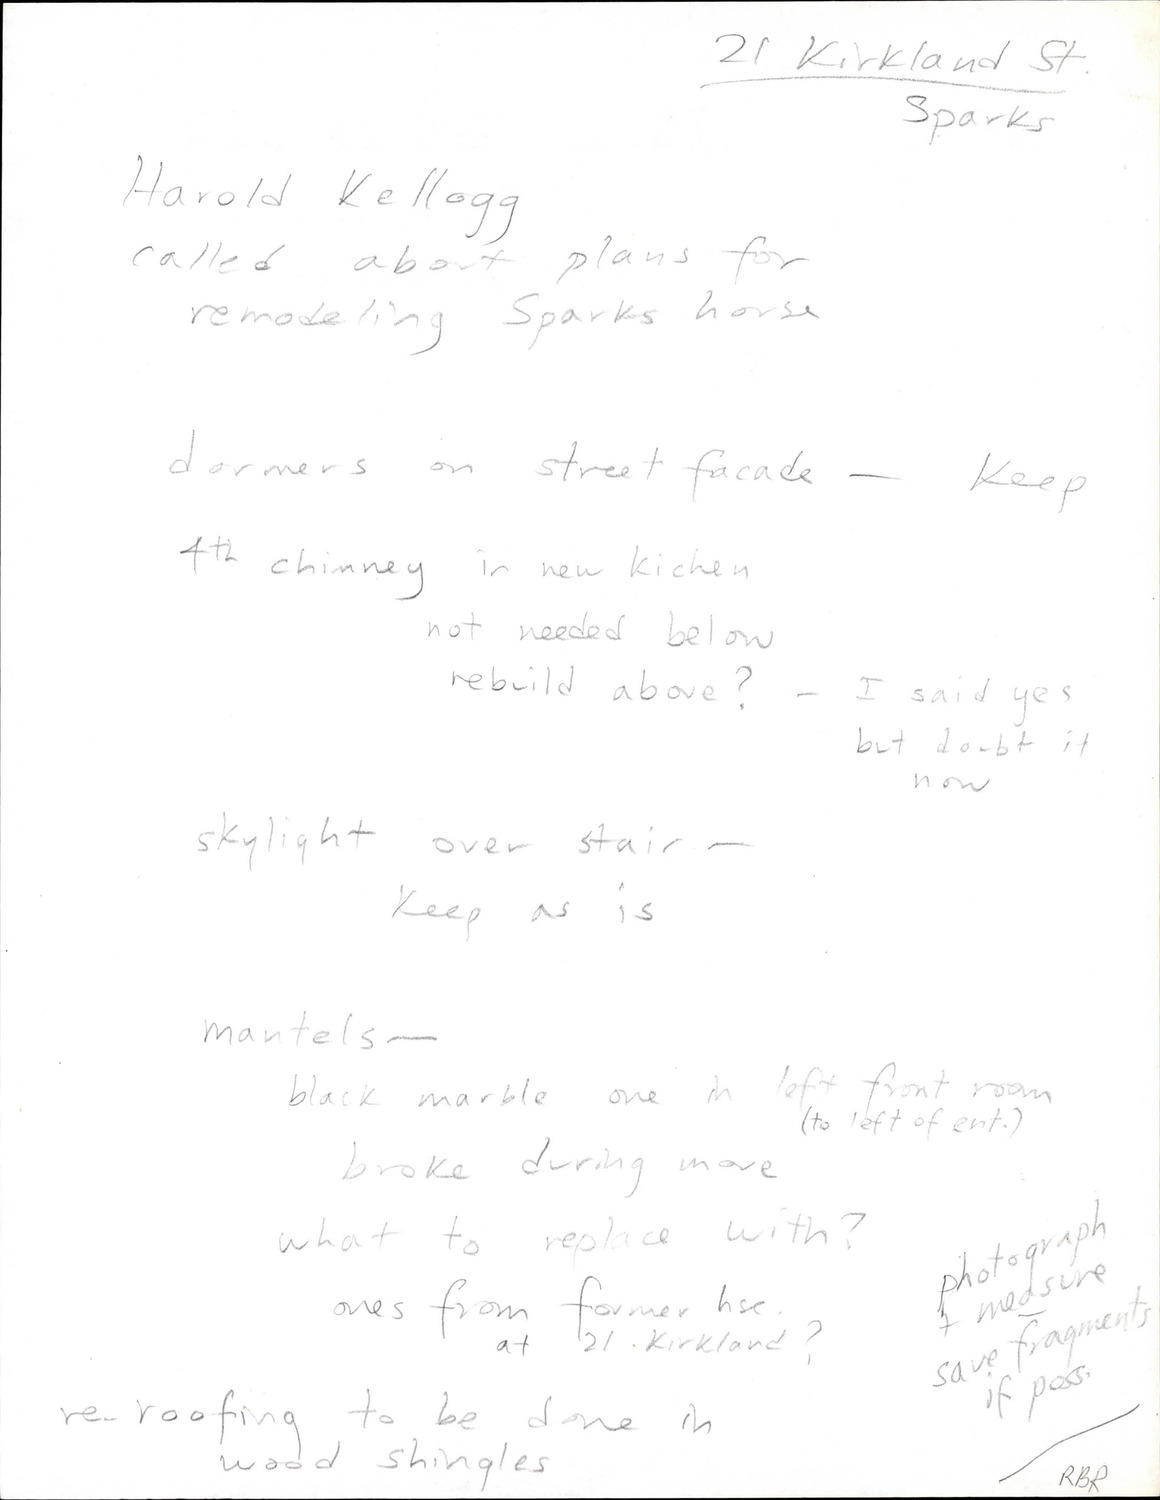 21 Kirkland St.
Sparks
Harold Kellogg
called about plans for
remodeling Sparks house
dormers on street facade — Keep
4th chimney in new kichen
not needed below
rebuild above? – I said yes
but doubt it
now
skylight over stair —
Keep as is
mantels —
black marble one in left front room
(to left of ent.)
broke during move
what to replace with?
ones from former hse.
at 21 Kirkland?
photograph
+ measure
save fragments
if poss.
re-roofing to be done in
wood shingles
RBR